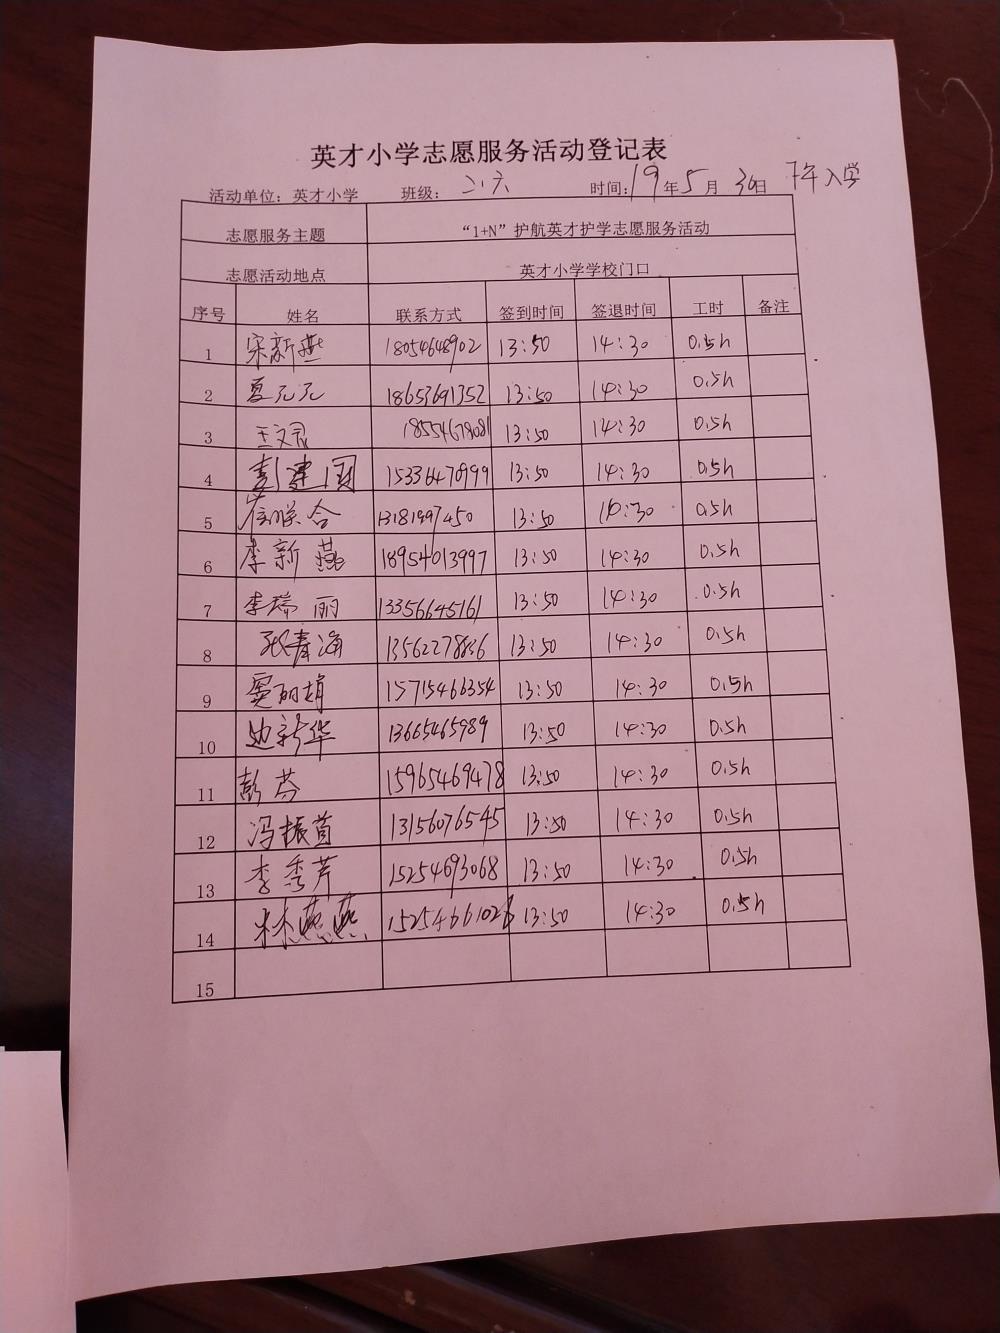 英才小学志愿服务活动登记表
活动单位：英才小学 班级：二.六 时间：19年5月30日 下午入学
志愿服务主题 “1+N”护航英才护学志愿服务活动
志愿活动地点 英才小学学校门口
序号 姓名 联系方式 签到时间 签退时间 工时 备注
1 宋新燕 18054648902 13:50 14:30 0.5h
2 夏元元 18653691352 13:50 14:30 0.5h
3 18554678081 13:50 14:30 0.5h
4 彭建国 15336470999 13:50 14:30 0.5h
5 崔联合 13181997450 13:50 14:30 0.5h
6 李新燕 18954013997 13:50 14:30 0.5h
7 李瑞丽 13356645161 13:50 14:30 0.5h
8 张春海 13:50 14:30 0.5h
9 窦丽娟 15715466354 13:50 14:30 0.5h
10 边新华 13665465989 13:50 14:30 0.5h
11 彭芬 15965469478 13:50 14:30 0.5h
12 冯振苗 13156076545 13:50 14:30 0.5h
13 李秀芹 15254693068 13:50 14:30 0.5h
14 林燕燕 15254661026 13:50 14:30 0.5h
15